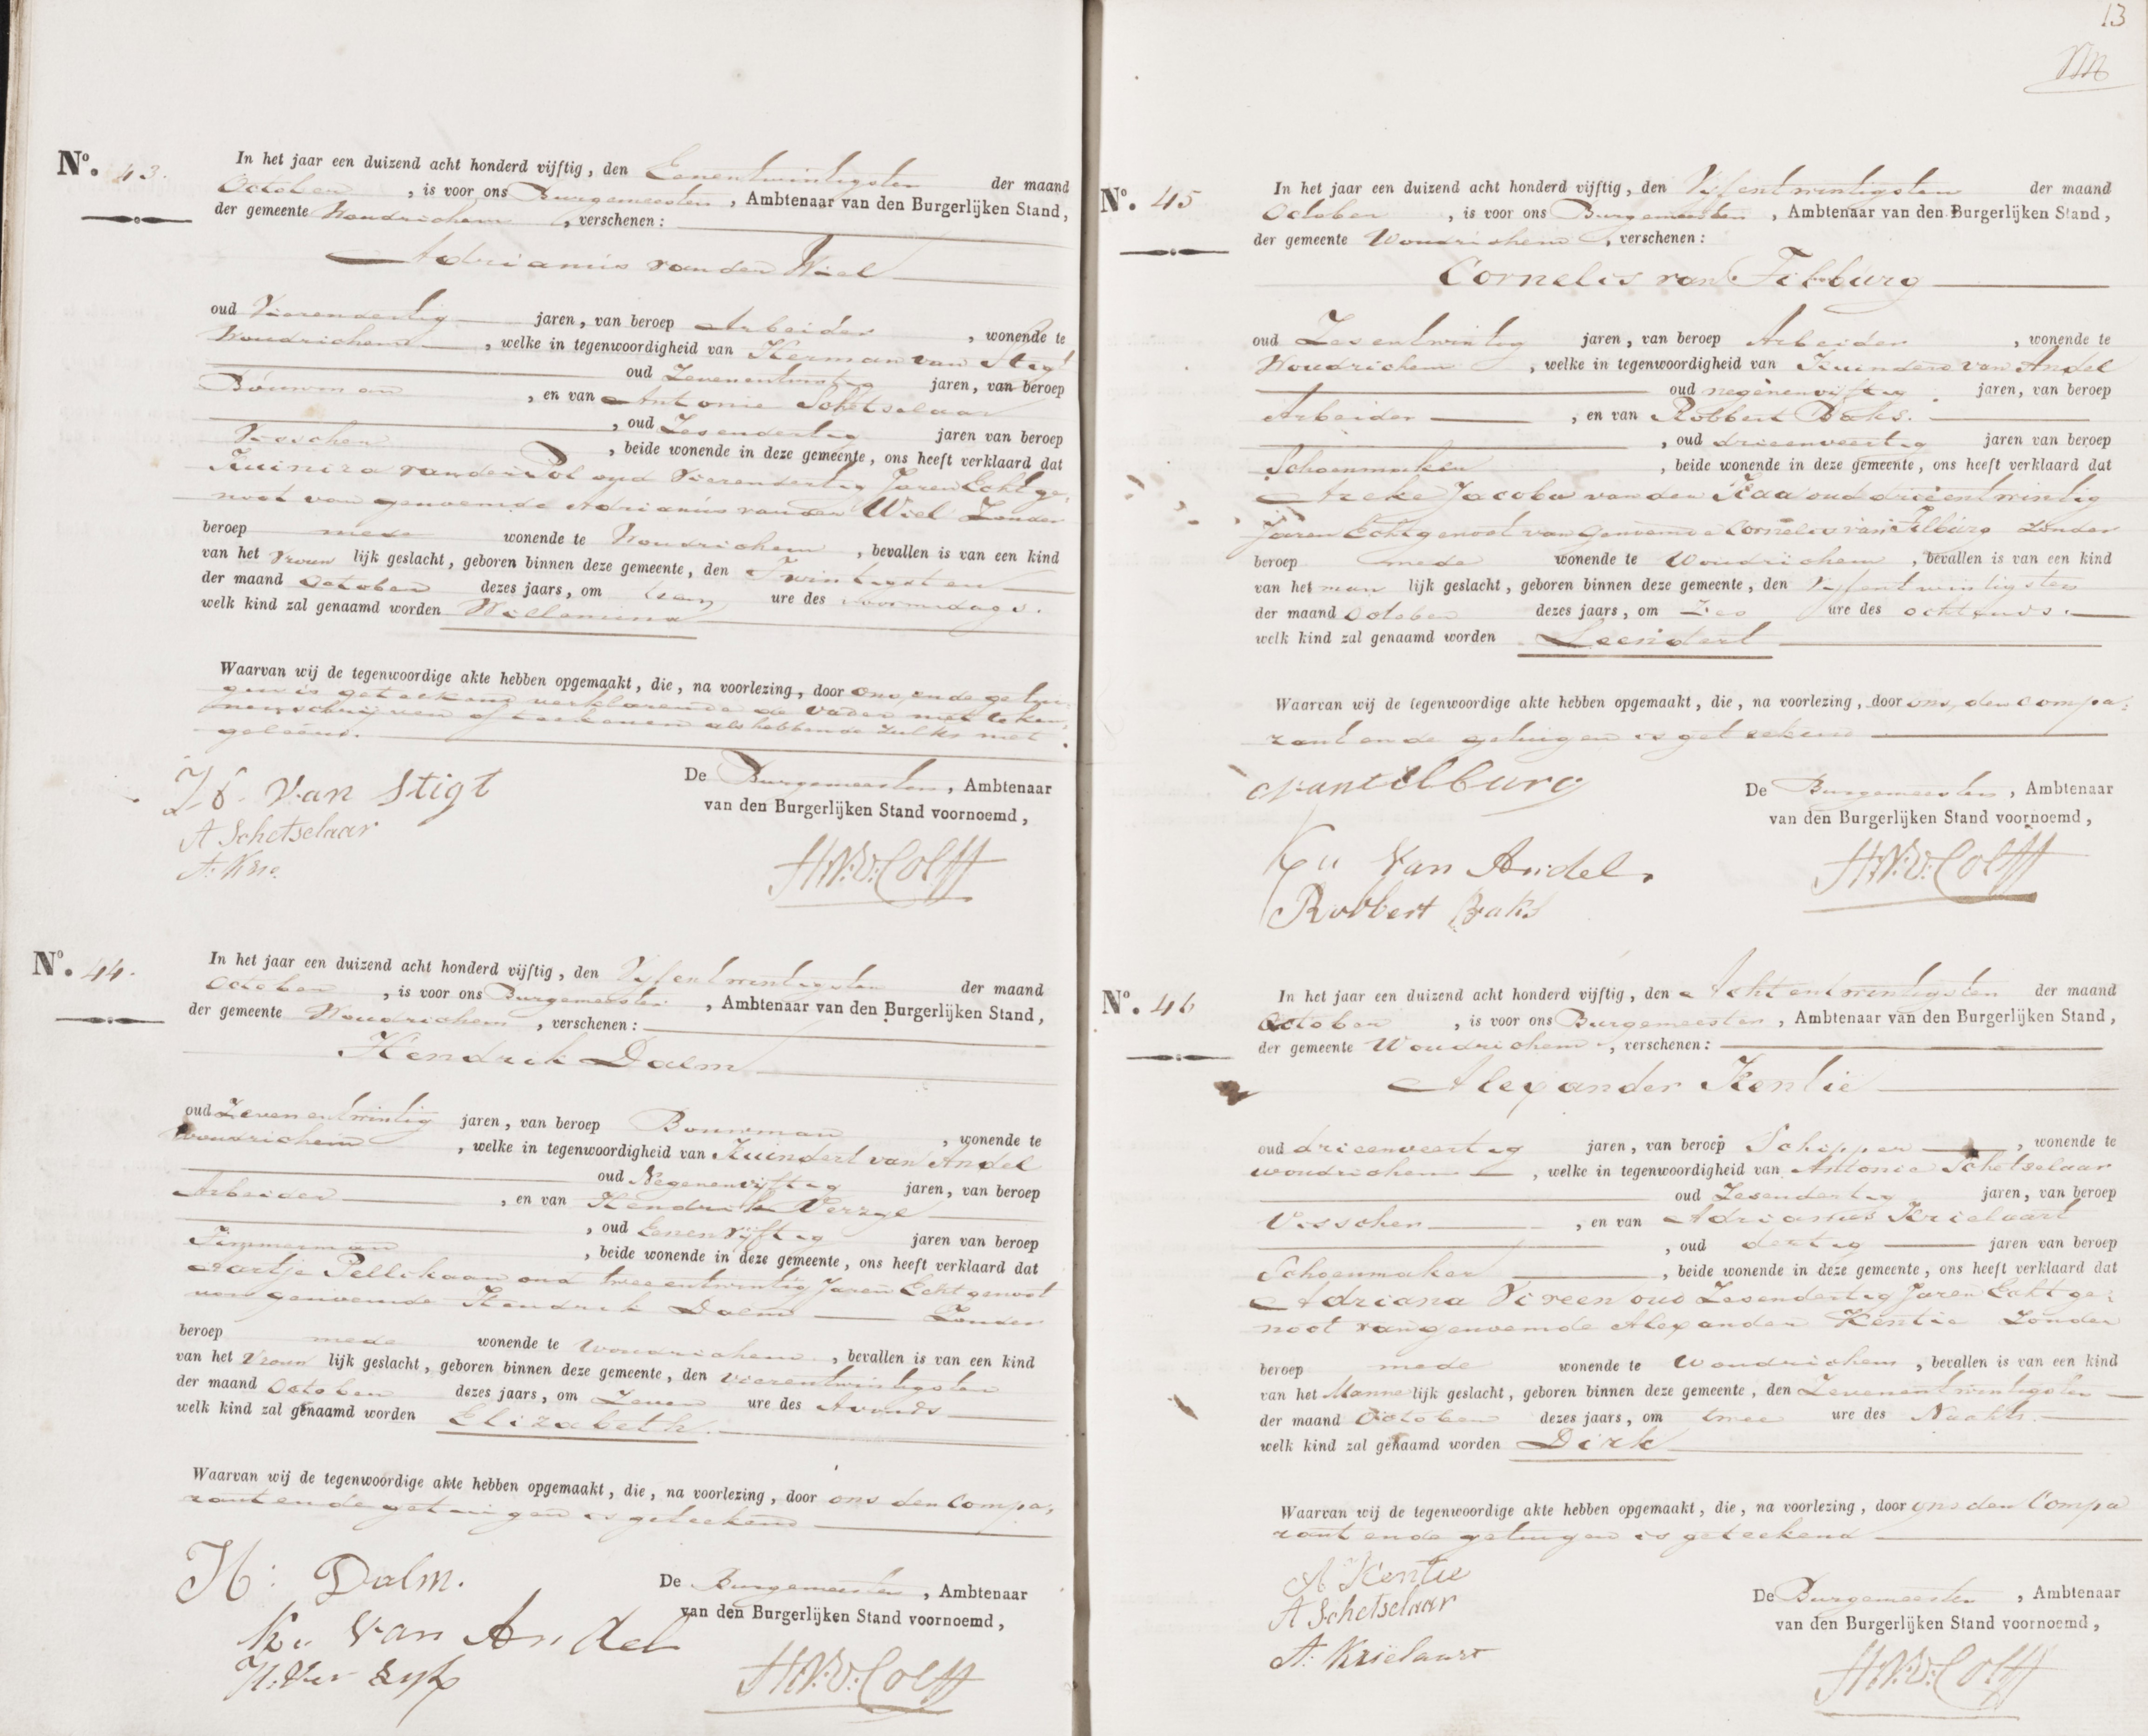 No. 43.
In het jaar een duizend acht honderd vijftig, den Eenentwintigsten der maand
October, is voor ons Burgemeester, Ambtenaar van den Burgerlijken Stand,
der gemeente Woudrichem, verschenen:
Adrianus van den Wiel
oud Vierendertig jaren, van beroep Arbeider, wonende te
Woudrichem, welke in tegenwoordigheid van Herman van Stigt
oud Zevenentwintig jaren, van beroep
Bouwman, en van Antonie Schetselaar
, oud Zesendertig jaren van beroep
Visscher, beide wonende in deze gemeente, ons heeft verklaard dat
van der Pol oud Vierendertig Jaren Echtge-
noot van genoemde Adrianus van den Wiel Zonder
beroep mede wonende te Woudrichem, bevallen is van een kind
van het Vrouwlijk geslacht, geboren binnen deze gemeente, den Twintigsten
der maand October dezes jaars, om ure des voormiddags.
welk kind zal genaamd worden Willemina
Waarvan wij de tegenwoordige akte hebben opgemaakt, die, na voorlezing, door ons, en de getui-
gen is geteekend verklarende de vader niet te kun-
nen schrijven of teekenen als hebbende zulks niet
geleerd.
H. van Stigt
A Schetselaar
De Burgemeester, Ambtenaar
van den Burgerlijken Stand voornoemd,
No. 44.
In het jaar een duizend acht honderd vijftig, den Vijfentwintigsten der maand
October, is voor ons Burgemeester, Ambtenaar van den Burgerlijken Stand,
der gemeente Woudrichem, verschenen:
Hendrik Dalm
oud Zevenentwintig jaren, van beroep Bouwman, wonende te
Woudrichem, welke in tegenwoordigheid van Kuindert van Andel
oud Negenenvijftig jaren, van beroep
Arbeider, en van Hendrik Verzyl
, oud Eenenvijftig jaren van beroep
Timmerman, beide wonende in deze gemeente, ons heeft verklaard dat
Aartje Pellikaan oud tweeentwintig Jaren Echtgenoot
van genoemde Hendrik Dalm Zonder
beroep mede wonende te Woudrichem, bevallen is van een kind
van het Vrouwlijk geslacht, geboren binnen deze gemeente, den vierentwintigsten
der maand October dezes jaars, om Zeven ure des Avonds
welk kind zal genaamd worden Elizabeth.
Waarvan wij de tegenwoordige akte hebben opgemaakt, die, na voorlezing, door ons den Compa-
rant en de getuigen is geteekend
H: Dalm.
Ku van Andel
H. Ver Zyl
De Burgemeester, Ambtenaar
van den Burgerlijken Stand voornoemd,
13
No. 45
In het jaar een duizend acht honderd vijftig, den Vijfentwintigsten der maand
October, is voor ons Burgemeester, Ambtenaar van den Burgerlijken Stand,
der gemeente Woudrichem, verschenen:
Cornelis van Tilburg
oud Zesentwintig jaren, van beroep Arbeider, wonende te
Woudrichem, welke in tegenwoordigheid van Kuindert van Andel
oud negenenvijftig jaren, van beroep
Arbeider, en van Robbert Baks.
, oud drieenveertig jaren van beroep
Schoenmaker, beide wonende in deze gemeente, ons heeft verklaard dat
Jacoba van der oud drieentwintig
Jaren Echtgenoot van Genoemde Cornelis van Tilburg Zonder
beroep mede wonende te Woudrichem, bevallen is van een kind
van het manlijk geslacht, geboren binnen deze gemeente, den Vijfentwintigsten
der maand October dezes jaars, om Zes ure des ochtends.
welk kind zal genaamd worden Leendert
Waarvan wij de tegenwoordige akte hebben opgemaakt, die, na voorlezing, door ons, den Compa-
rant en de getuigen is geteekend
C van tilburg
Ku van Andel.
Robbert Baks
De Burgemeester, Ambtenaar
van den Burgerlijken Stand voornoemd,
No. 46
In het jaar een duizend acht honderd vijftig, den Achtentwintigsten der maand
October, is voor ons Burgemeester, Ambtenaar van den Burgerlijken Stand,
der gemeente Woudrichem, verschenen:
Alexander Kentie
oud drieenveertig jaren, van beroep Schipper, wonende te
Woudrichem, welke in tegenwoordigheid van Antonie Schetselaar
oud Zesendertig jaren, van beroep
Visscher, en van Adrianus Krielaart
, oud dertig jaren van beroep
Schoenmaker, beide wonende in deze gemeente, ons heeft verklaard dat
Adriana Vireen oud Zesendertig Jaren Echtge-
noot van genoemde Alexander Kentie Zonder
beroep mede wonende te Woudrichem, bevallen is van een kind
van het Mannelijk geslacht, geboren binnen deze gemeente, den Zevenentwintigsten
der maand October dezes jaars, om twee ure des Nachts.
welk kind zal genaamd worden Dirk
Waarvan wij de tegenwoordige akte hebben opgemaakt, die, na voorlezing, door ons den Compa
rant en de getuigen is geteekend
A Kentie
A Schetselaar
A. Krielaart
De Burgemeester, Ambtenaar
van den Burgerlijken Stand voornoemd,